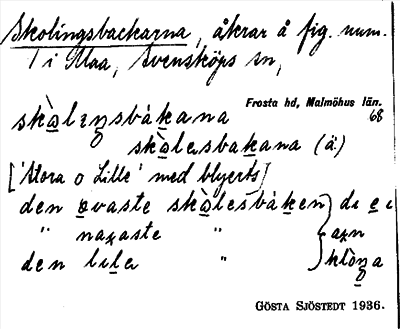 Skolingsbackarna, åkrar å fig. num.
1 i Maa, Svensköps sn,
Frosta hd, Malmöhus län.
68
skòlıŋsbákana
skòlesbakana (ä)
['Stora o Lille' med blyerts]
den ovaste skòlesbáken } dı e ı
" naxaste " } axn
den lıle " } klòŋa
GÖSTA SJÖSTEDT 1936.